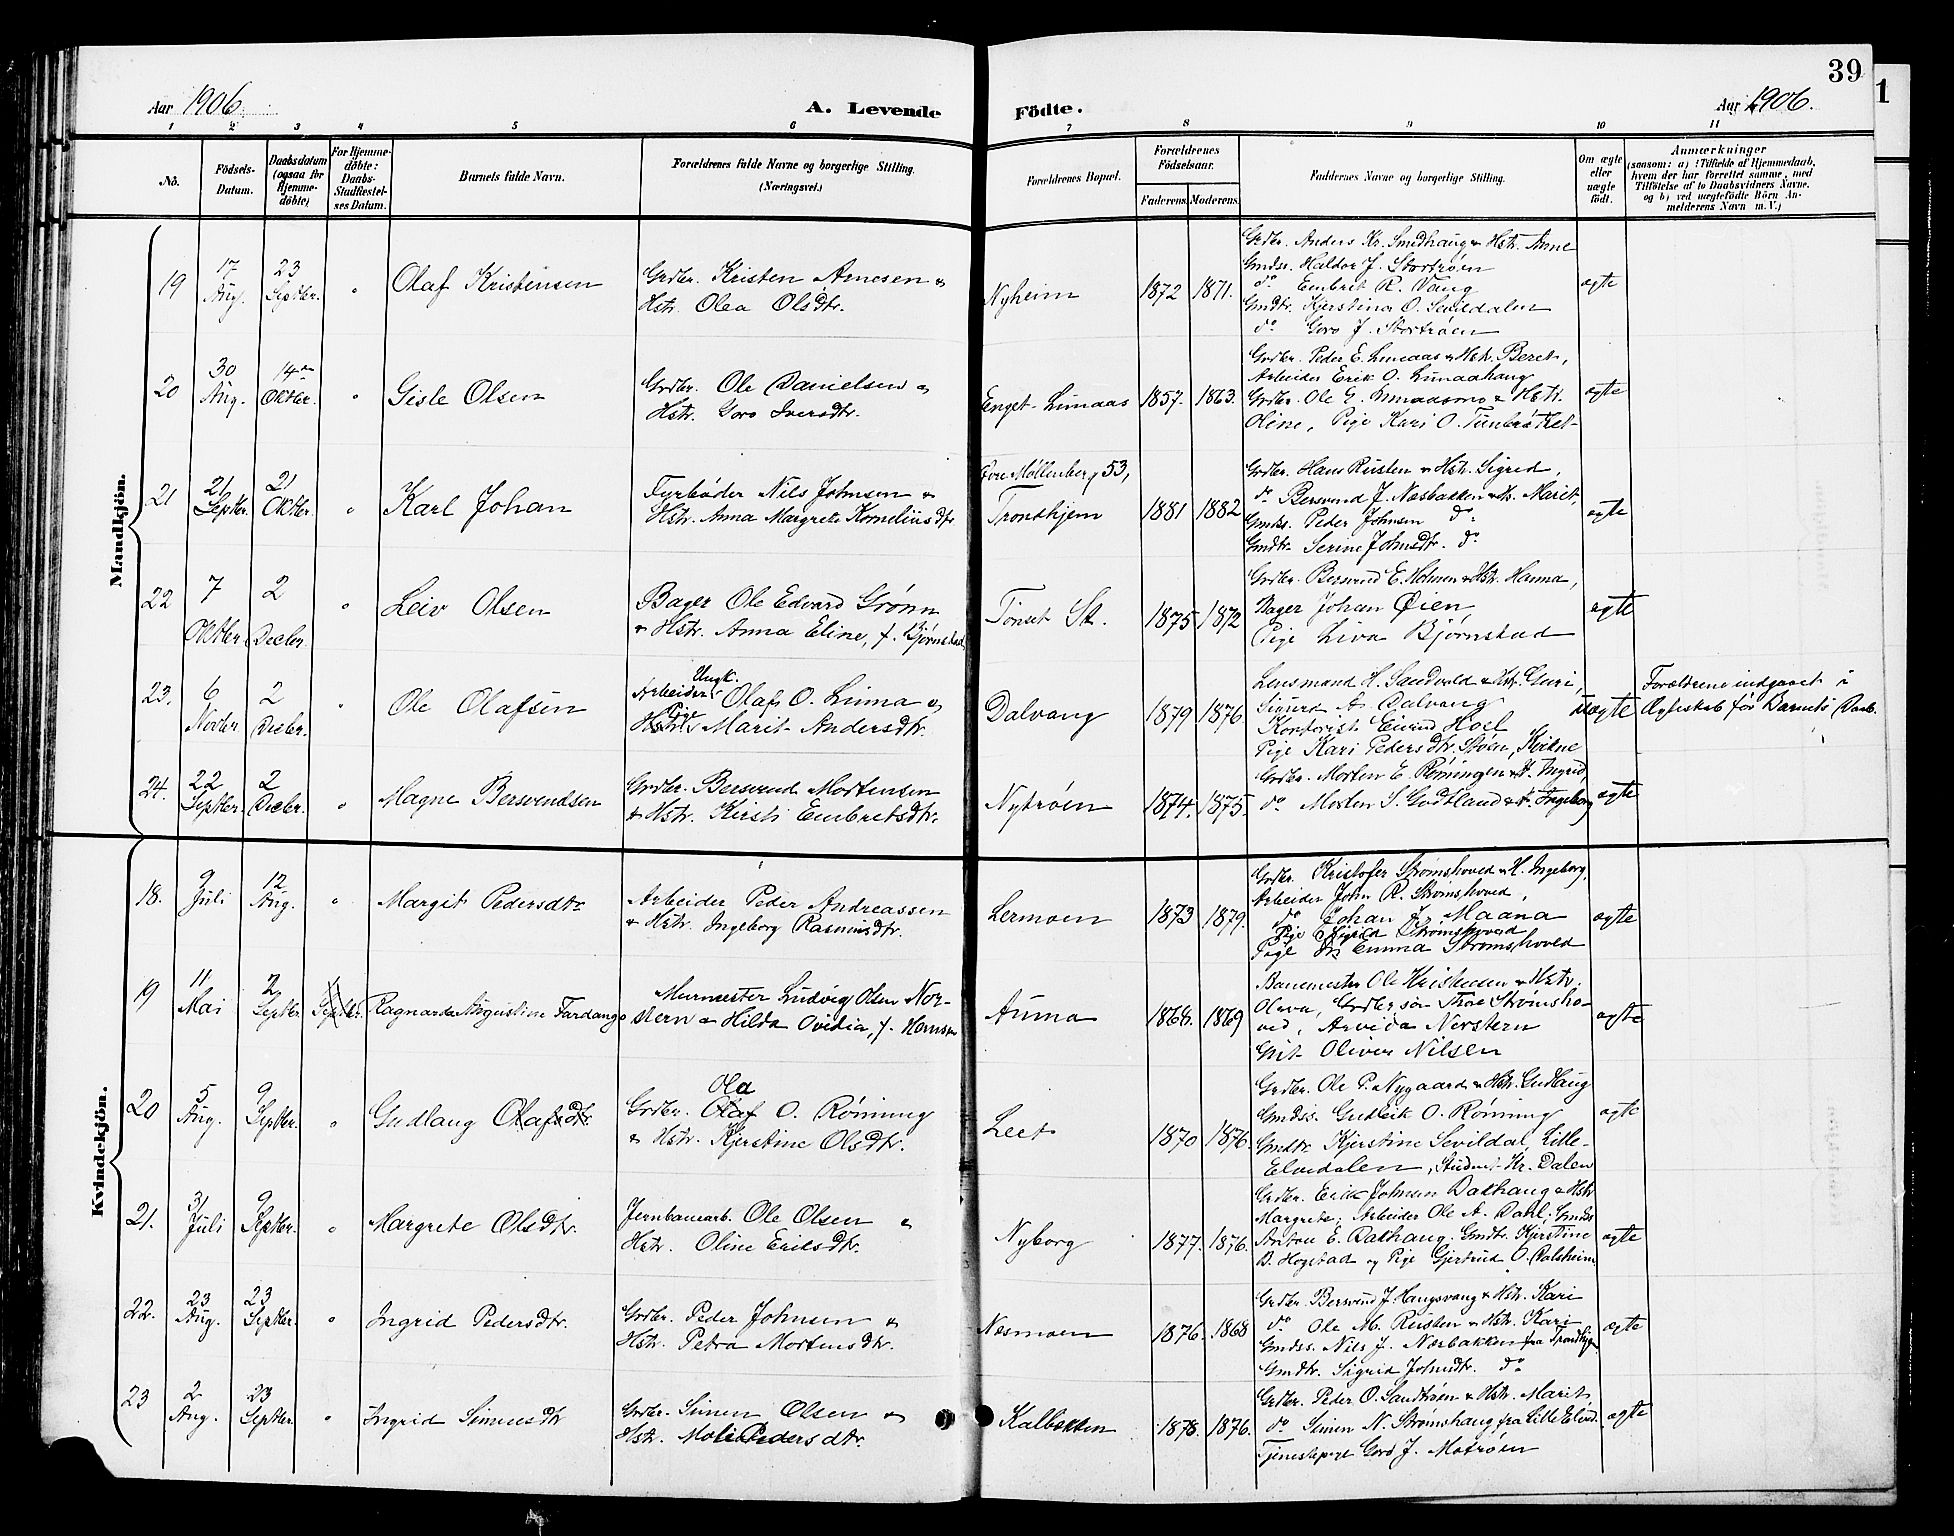 39
1
Aar 1906.
A. Levende
Födte.
Aar 1906.
1 2 3 4 5 6 7 8 9 10 11
No.
Födsels-
Datum.
Daabsdatum
(ogsaa for
Hjemme-
döbte)
For Hjemme-
döbte:
Daabs-
Stadfæstel-
ses Datum.
Barnets fulde Navn.
Forældrenes fulde Navne og borgerlige Stilling.
(Næringsvei.)
Forældrenes Bopæl.
Forældrenes
Födselsaar.
Faderens. Moderens.
Faddernes Navne og borgerlige Stilling.
Om ægte
eller
uægte
födt.
Anmærkninger
(saasom: a) i Tilfælde af Hjemmedaab,
hvem der har forrettet samme, med
Tilföielse af to Daabsvidners Navne,
og b) ved uægtefödte Börn An-
melderens Navn m. V.)
Mandkjön.
19
17
Aug.
23
Septbr.
"
Olaf Kristensen
Grdbr. Kristen Arnesen &
Hstr. Olea Olsdtr.
Nyheim
1872
1871.
Grdbr. Anders Kr. Smedhaug & Hstr. Anne
Gmdss. Haldor J. Stortrøen
do Embret R. Vang
Gmdtr. Kjerstina O. Sevildalen
do Goro J. Stortrøen
ægte
20
30
Aug.
14de
Oktbr.
"
Gisle Olsen
Grdbr. Ole Danielsen &
Hstr. Goro Iversdtr.
Enget-Lunaas
1857.
1863.
Grdbr. Peder E. Lunaas & Hstr. Beret,
Arbeider Erik O. Lunaahaug
Grdbr. Ole E. Unaasmo & Hstr.
Oline, Pige Kari O. Tunbrøttet-
ægte
21
21
Septbr.
21
Oktbr.
"
Karl Johan
Fyrbøder Nils Johnsen &
Hstr. Anna Margrete Korneliusdtr
Øvre Møllenberg 53,
Trondhjem
1881
1882
Grdbr. Hans Rusten & Hstr. Sigrid,
do Bersvend J. Næsbakken & Hs. Marit,
Gmdss. Peder Johnsen do
Gmdtr. Serine Johnsdtr. do
ægte
22
7
Oktbr.
2
Decbr.
"
Leiv Olsen
Bager Ole Edvard Grønn
& Hstr. Anna Eline, f. Bjørnstad
Tønset St.
1875
1872
Grdbr. Bersvend E. Holmen & Hstr. Hanna,
Bager Johan Øien,
Pige Liva Bjørnstad
ægte
23.
6
Novbr.
2
Decbr.
"
Ole Olafsen
Ungk.
Arbeider Olaf O. Linna &
Pige
Hstr. Marit Andersdtr.
Dalvang
1879
1876
Lensmand H. Sandvold & Hstr. Guri,
Sigurd A. Dalvang
Kontorist Eivind Hoel
Pige Kari Pedersdtr. Støen, Kvikne
uægte
Forældrene indgaaet i
Ægteskab før Barnets Daab.
24.
22
Septbr.
2
Decbr.
"
Magne Bersvendsen
Grdbr. Bersvend Mortensen
& Hstr. Kirsti Embretsdtr.
Nytrøen
1874.
1875.
Grdbr. Morten E. Rønningen & H. Ingrid,
do Morten S. Godtland & H. Ingeborg
ægte
Kvindekjön.
18.
9
Juli
12
Aug.
"
Margit Pedersdtr
Arbeider Peder Andreassen
& Hstr. Ingeborg Rasmusdtr.
Lermoen
1873
1879.
Grdbr. Kristofer Strømshoved & H. Ingeborg,
Arbeider John R. Strømshoved,
do Johan Jr. Maana
Pige Sigrid Strømshoved
Pige Emma Strømshoved
ægte
19
11
Mai
2
Septbr.
Septbr.
Ragnarda Augustine Fardang
Murmester Ludvig Olsen Nor-
stern & Hilda Ovidia, f. Hansen
Auma
1868.
1869
Banemester Ole Kristensen & Hstr.
Olava, Grdbr.søn Thore Strømsho-
ved, Arvida Nerstern
Gift Oliver Nilsen
ægte
20
5
Aug.
9
Septbr.
"
Gudlaug Olafsdtr.
Ola
Grdbr. Olaf O. Rønning
& Hstr. Kjerstine Olsdtr.
Leet
1870
1876.
Grdbr. Ole P. Nygaard & Hstr. Gudlaug
Gmdss. Gudleik O. Rønning
Gmdtr Kjerstine Sevildal, Lille-
Elvedalen, Student Kr. Dalen
ægte
21.
31
Juli
9
Septbr.
"
Margrete Olsdtr.
Jernbanearb. Ole Olsen &
Hstr. Oline Eriksdtr.
Nyborg
1877.
1876.
Grdbr. Erik Johnsen Dalhaug & Hstr
Margrete; Arbeider Ole A. Dahl; Gmdss
Anton E. Dalhaug. Gmdtr. Kjerstine
B. Hogstad og Pige Gjertrud O. Dalsheim
ægte
22.
23
Aug.
23
Septbr.
"
Ingrid Pedersdtr.
Grdbr. Peder Johnsen &
Hstr. Petra Mortensdtr.
Næsmoen
1876.
1868
Grdbr. Bersvend J. Haugsvang & Hstr. Kari
do Ole M. Rusten & Hstr. Kari
Gmdss. Nils J. Næsbakken fra Trondhjem
Gmdtr. Sigrid Johnsdtr. do
ægte
23
2
Aug.
23
Septbr.
"
Ingrid Simensdtr
Grdbr. Simen Olsen &
Hstr. Moli Pedersdtr.
Kalbækken
1878.
1876.
Grdbr. Peder O. Sandtrøen & Hstr. Marit
do Simen N. Strømshaug fra Lille Elvd.
Tjenestepige Goro J. Motrøen
ægte